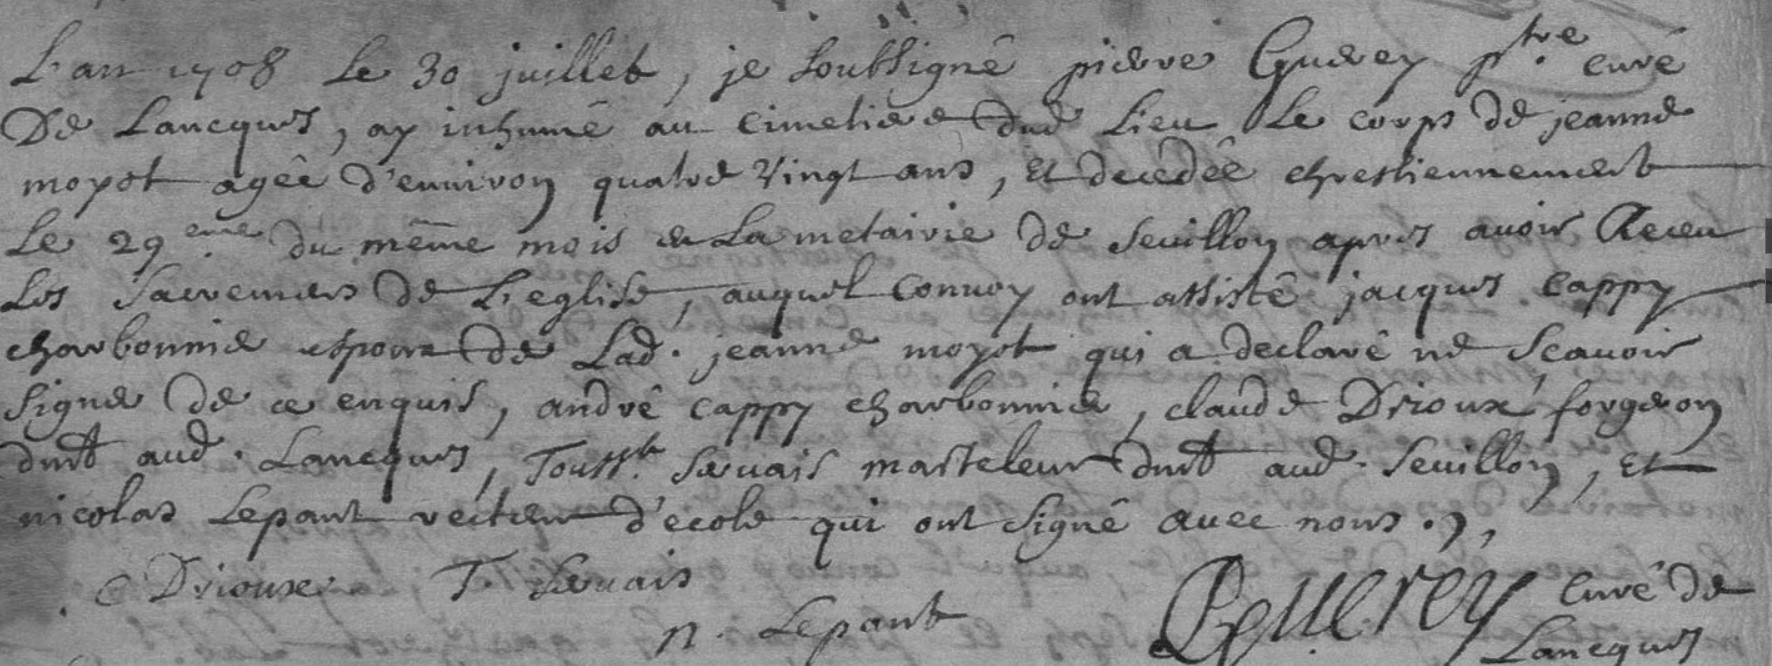 L'an 1708 Le 30 juillet, je soussigné pierre Guerey ptre curé
De Lancques, ay inhumé au cimetiere dud Lieu Le corps de jeanne
moyot agée d'environ quatre vingt ans, et decedée chrestiennement
Le 29.eme du même mois en La metairie de Seuillon apres auoir Receu
Les Sacremens de L'eglise, auquel conuoy ont assisté jacques cappy
charbonnier espoux de Lad. jeanne moyot qui a declaré ne Sçauoir
signer de ce enquis, andré cappy charbonnier, claude Drioux forgeron
dmt aud. Lancques, Tousst. Seruais marteleur dmt aud. Seuillon, et
nicolas Lepant recteur d'ecole qui ont signé auec nous.
C Drioux T. Seruais
n. Lepant
PGuerey curé de
Lancques